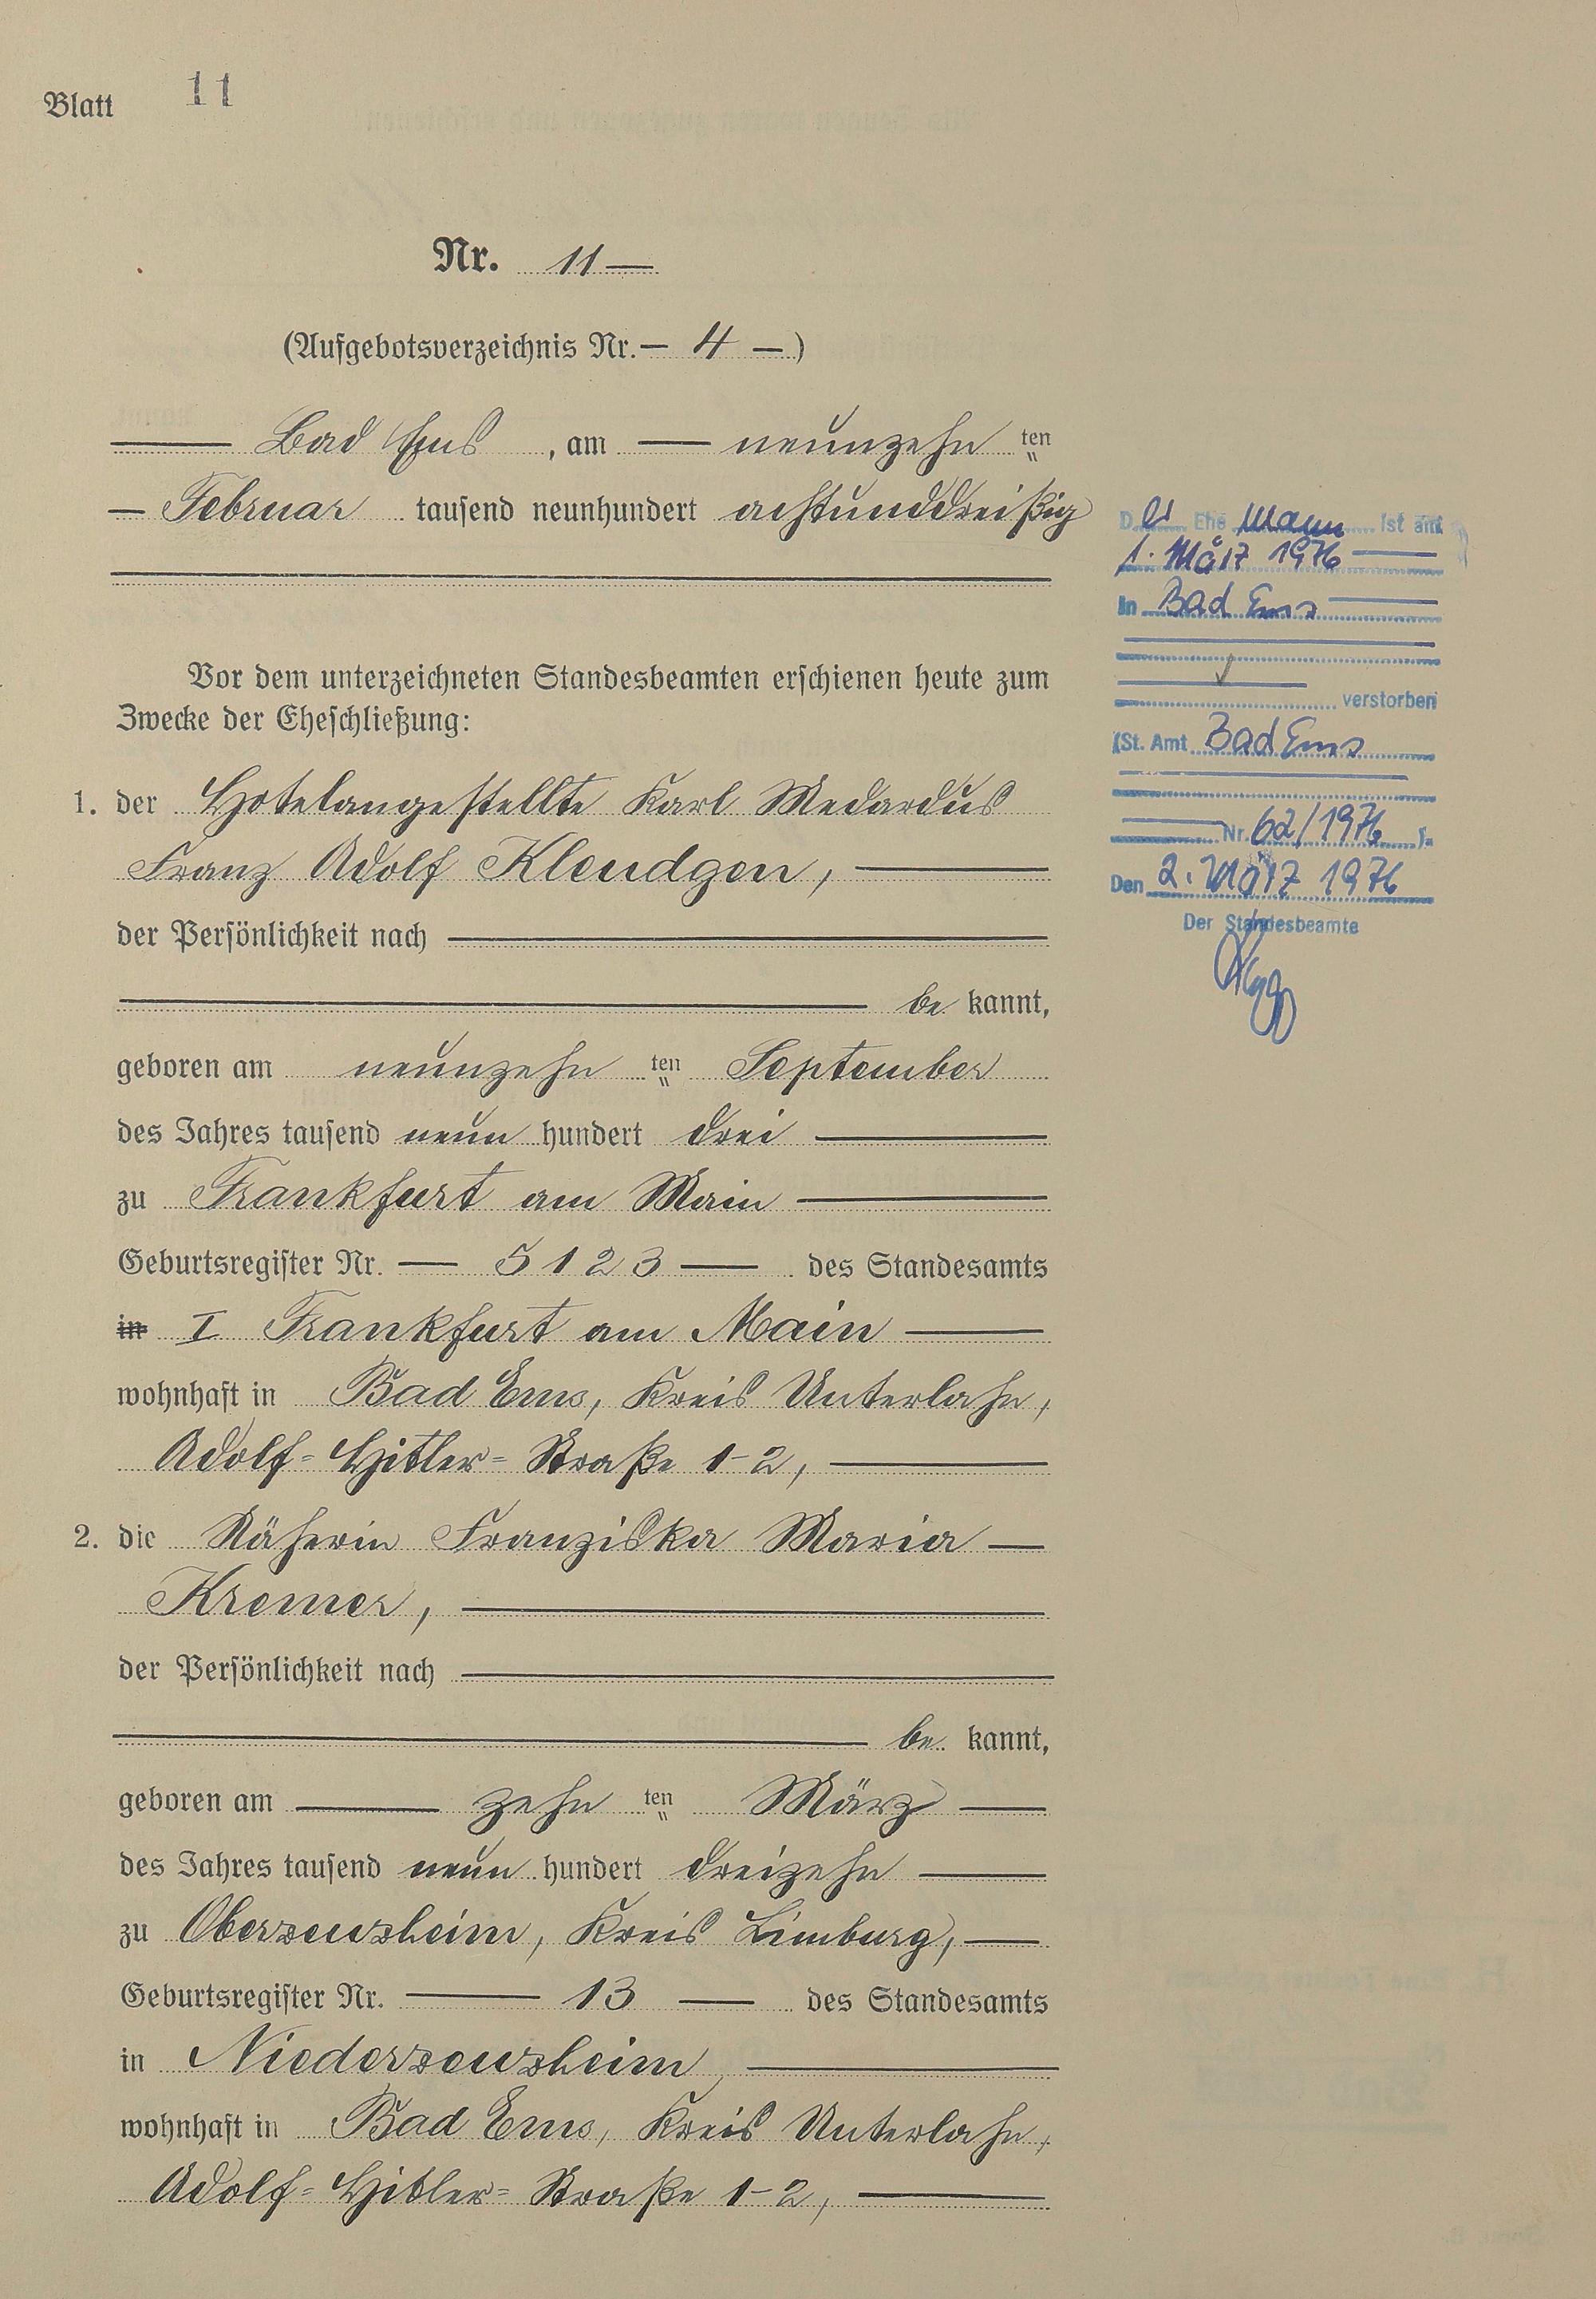 Blatt 11
Nr. 11 —
(Aufgebotsverzeichnis Nr. — 4 —)
Bad Ems, am — neunzehn ten
— Februar tausend neunhundert achtunddreißig
Vor dem unterzeichneten Standesbeamten erschienen heute zum
Zwecke der Eheschließung:
1. der Hotelangestellte Karl Medardus
Franz Adolf Klendgen, —
der Persönlichkeit nach —
be kannt,
geboren am neunzehn ten September
des Jahres tausend neun hundert drei —
zu Frankfurt am Main —
Geburtsregister Nr. — 5123 — des Standesamts
in I Frankfurt am Main —
wohnhaft in Bad Ems, Kreis Unterlahn,
Adolf-Hitler-Straße 1-2, —
2. die Näherin Franziska Maria —
Kremer, —
der Persönlichkeit nach —
be kannt,
geboren am — zehn ten März —
des Jahres tausend neun hundert dreizehn —
zu Oberzeuzheim, Kreis Limburg, —
Geburtsregister Nr. — 13 — des Standesamts
in Niederzeuzheim, —
wohnhaft in Bad Ems, Kreis Unterlahn,
Adolf-Hitler-Straße 1-2, —
Der Ehe Mann ist am
1. März 1976 —
in Bad Ems —
verstorben
(St. Amt Bad Ems
Nr. 62/1976).
Den 2. März 1976
Der Standesbeamte